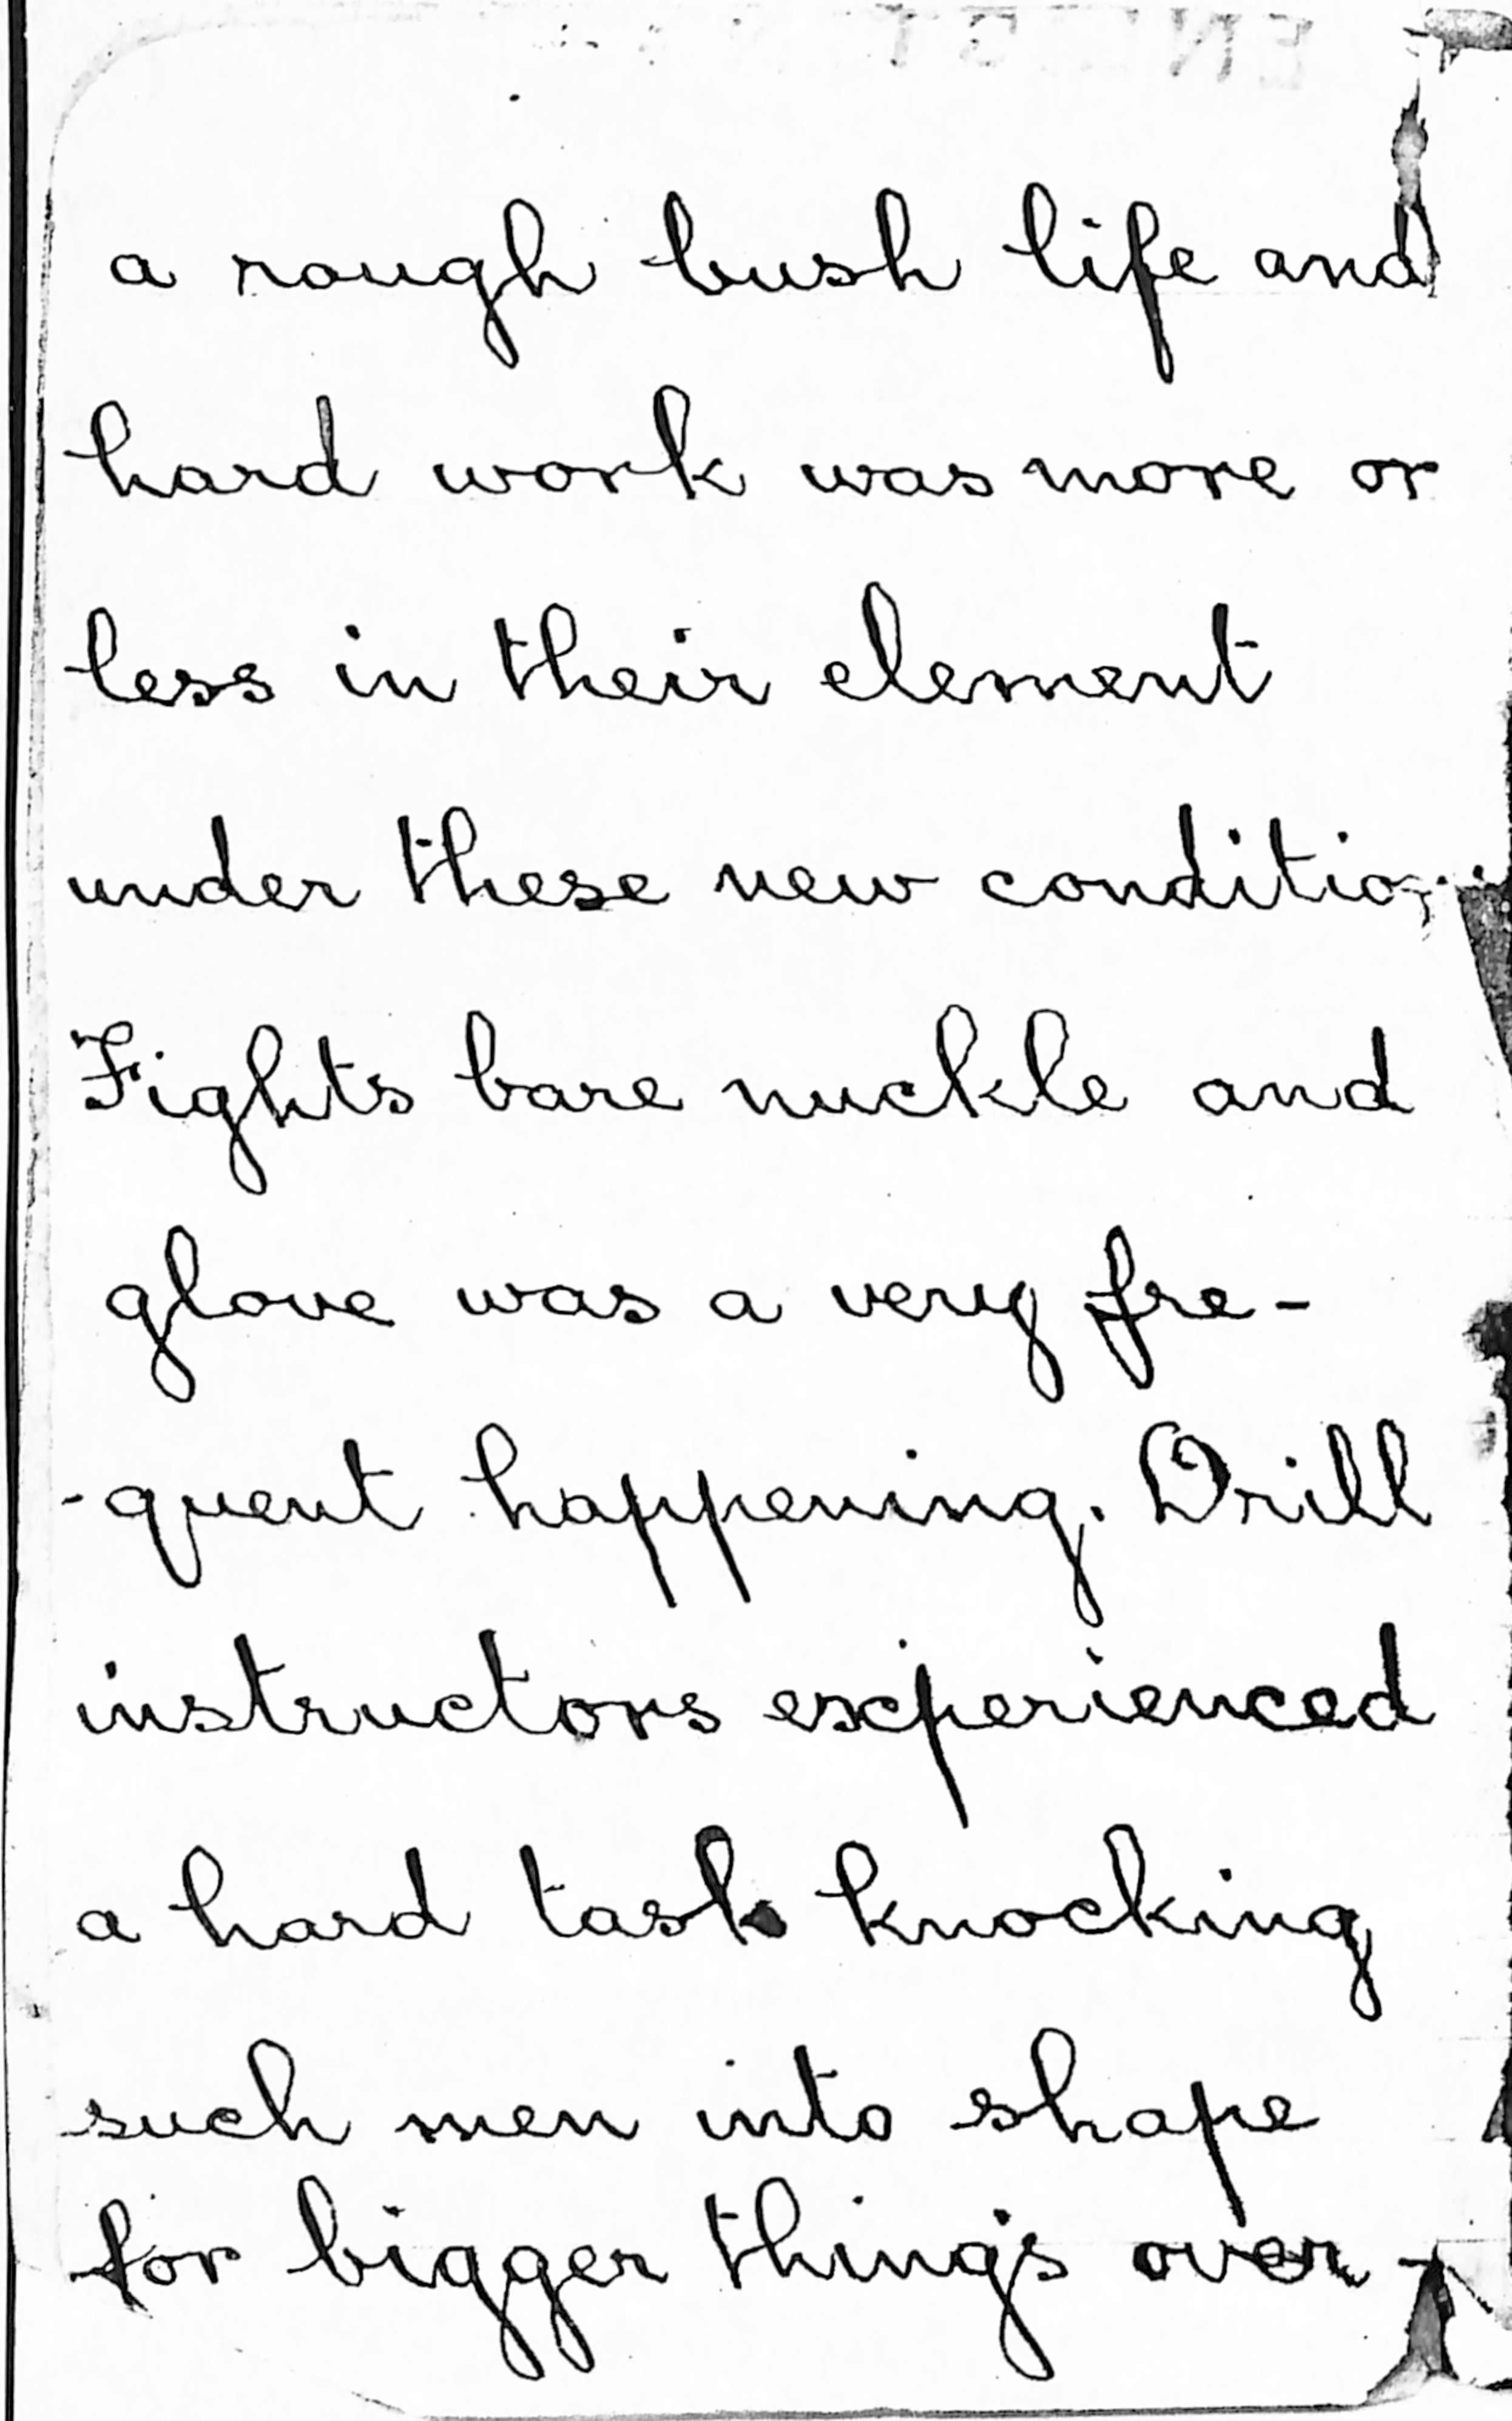 a rough bush life and
hard work was more or
less in their element
under these new conditio
Fights bare nuckle and
glove was a very fre-
-quent happening. Drill
instructors experienced
a hard task knocking
such men into shape
for bigger things over-